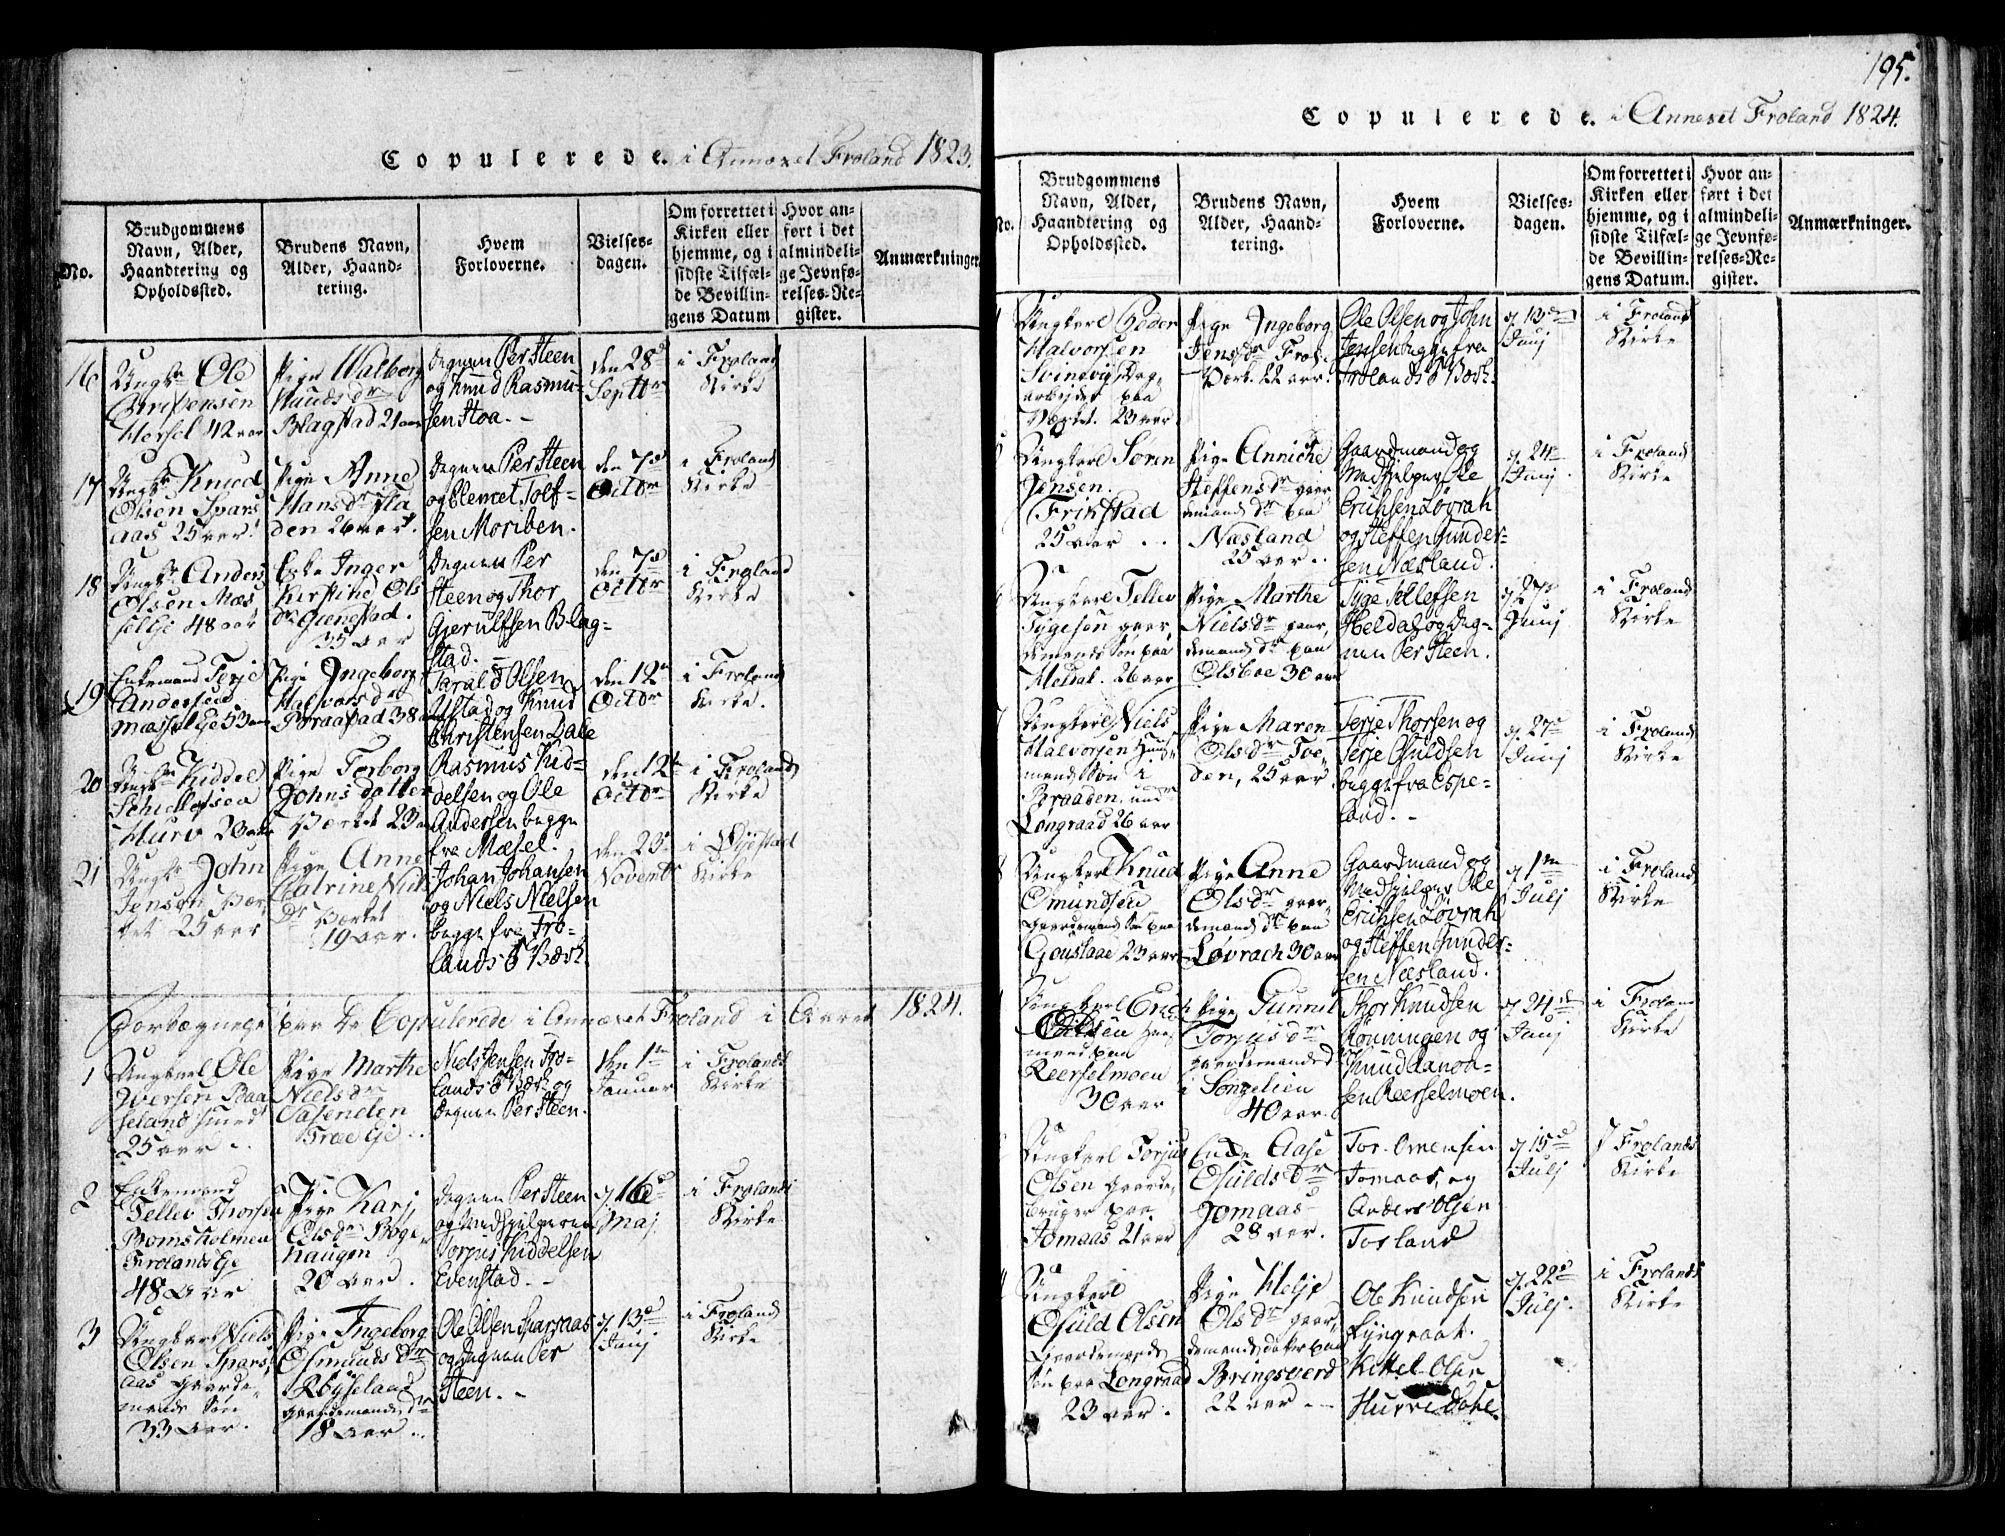 Copulerede. i Annexet Froland 1823.
No.
Brudgommens
Navn, Alder,
Haandtering og
Opholdssted.
Brudens Navn,
Alder, Haand-
tering.
Hvem
Forloverne.
Vielses-
dagen.
Om forrettet i
Kirken eller
hjemme, og i
sidste Tilfæl-
de Bevillin-
gens Datum
Hvor an-
ført i det
almindeli-
ge Jevnfø-
relses-Re-
gister.
Anmærkninger
16
Ungkr Ole
Christensen
Hersel 42 aar
Pige Walborg
Knuds dr
Blagstad 21 aar
Degnen Per Steen
og Knud Rasmu-
sen Stoa. -
den 28d
Septbr
i Froland
Kirke
17
Ungkr Knud
Olsen Spars
aas 25 aar.
Pige Anne
Hans dr Fla
den 26 aar.
Degnen Per Steen
og Clemet Tolf-
sen Moriben.
den 7d
Octbr
i Froland
Kirke
18
Ungkr Anders
Olsen Mæs
sel Eje 48 aar
Enke Inger
Kirstine Ols
dr Gjenestad.
35 aar
Degnen Per
Steen og Thor
Gjerulfsen Blag-
stad. -
den 7d
Octbr
i Froland
Kirke
19
Enkemand Terje
Andersen
Mæssel Eje 53 aar
Pige Ingeborg
Halvors dr
Braastad 38 aar
Tarald Olsen
Ufstad og Knud
Christensen Dale
den 12te
Octbr
i Froland
Kirke.
20
Ungkr Kiddel
Schiellefsen
Hurv 23 aar
Pige Torborg
Johns datter
Værket 23 a
Rasmus Kid-
delsen og Ole
Andersen begge
fra Mæsel.
den 12te
Octbr
i Frolands
Kirke
21
Ungkr John
Jensen Vær-
ket 25 aar
Pige Anne
Catrine Niels
Dr Værket
19 aar.
Johan Johansen
og Niels Nielsen
begge fra Fro-
lands Værk.
den 23d
Novembr
i Øjestad
Kirke
Fortegnelse paa de Copulerede i Annexet Froland i Aaret 1824.
1
Ungkarl Ole
Iversen Baa
seland Smed
25 aar
Pige Marthe
Niels dr
Træ Eje
Niels Jensen Fro-
lands Værk og
Degnen Per Steen.
den 1te
Januar
i Frolands
Kirke
2
Enkemand
Tellev Thorsen
Bomsholmen
Frolands Eje
48 Aar
Pige Karj
Ols dr Bøge
haugen
20 Aar.
Degnen Per Steen
og Medhjelperen
Torjus Kiddelsen
Evenstad. -
d. 16d
Maj
i Frolands
Kirke
3
Ungkarl Niels
Olsen Spars
aas Gaarde-
mands Søn
33 Aar.
Pige Ingeborg
Osmunds dr
Røyselaad
Gaardemands dr
18 Aar
Ole Olsen Sparsaas
og Degnen Per
Steen. -
d. 13d
Junj
i Frolands
Kirke
195.
Copulerede. i Annexet Froland 1824.
No.
Brudgommens
Navn, Alder,
Haandtering og
Opholdssted.
Brudens Navn,
Alder, Haand-
tering.
Hvem
Forloverne.
Vielses-
dagen.
Om forrettet i
Kirken eller
hjemme, og i
sidste Tilfæl-
de Bevillin-
gens Datum.
Hvor an-
ført i det
almindeli-
ge Jevnfø-
relses-Re-
gister.
Anmærkninger.
Ungkarl Peder
Halvorsen
Svindvig Dag-
arbejder paa
Værket. 23 aar
Pige Ingeborg
Jens dr Frol.
Værk. 22 aar.
Ole Olsen og John
Jensen begge fra
Frolands Værk.
d. 13de
Junj
i Froland
Kirke
Ungkarl Søren
Jensen
Frikstad
25 aar
Pige Anniche
Steffens dr gaar
demands dr paa
Næsland
25 aar
Gaardmand og
Medhjelper Ole
Erichsen Løvrak
og Steffen Gunder-
sen Næsland.
d. 24
Junj
i Froland
Kirke
Ungkarl Tellev
Tygesen gaar-
demands Søn paa
Heldal. 26 aar
Pige Marthe
Niels dr gaar-
demands dr paa
Olsboe 30 aar
Tyge Tellefsen
Heldal og Deg-
nen Per Steen.
d. 27d
Junj
i Froland
Kirke
Ungkarl Niels
Halvorsen Huus-
mands Søn i
Braaden, und
Longraad 26 aar
Pige Maren
Ols dr Toe
den, 25 aar
Terje Thorsen og
Terje Osuldsen
begge fra Espe-
land. -
d. 27d
Junj
i Froland
Kirke
Ungkarl Knud
Omundsen
Gaardemands Søn paa
Gouslaae 23 aar
Pige Anne
Ols dr gaar-
demands dr paa
Løvrach 30 aar
Gaardmand og
Medhjelper Ole
Erichsen Løvrak
og Steffen Gunder-
sen Næsland.
d. 1te
Julj
i Froland
Kirke
Ungkarl Erich
mand paa
Reerselmoen
30 aar
Pige Gunnil
Torjus dr
gaardemands d
i Songelien
40 aar.
Thor Knudsen
Rønningen og
Knud Aanon-
sen Reerselmoen.
d. 24de
Junj
i Froland
Kirke
Ungkarl Torjus
Olsen Gaarde-
bruger paa
Jomaas 21 aar
Enke Aase
Osulds dr
Jomaas
28 aar.
Tor Omensen
Jomaas, og
Anders Olsen
Tosland
d. 15d
Julj
i Frolands
Kirke
Ungkarl
Osuld Olsen
Gaardemands
Søn paa Longraad
23 aar.
Pige Helje
Ols dr gaar-
demands datter paa
Bringsværd
22 aar
Ole Knudsen
Lyngraat.
Kittel Olsen
Hurvedahl.
d. 22d
Julj.
i Frolands
Kirke